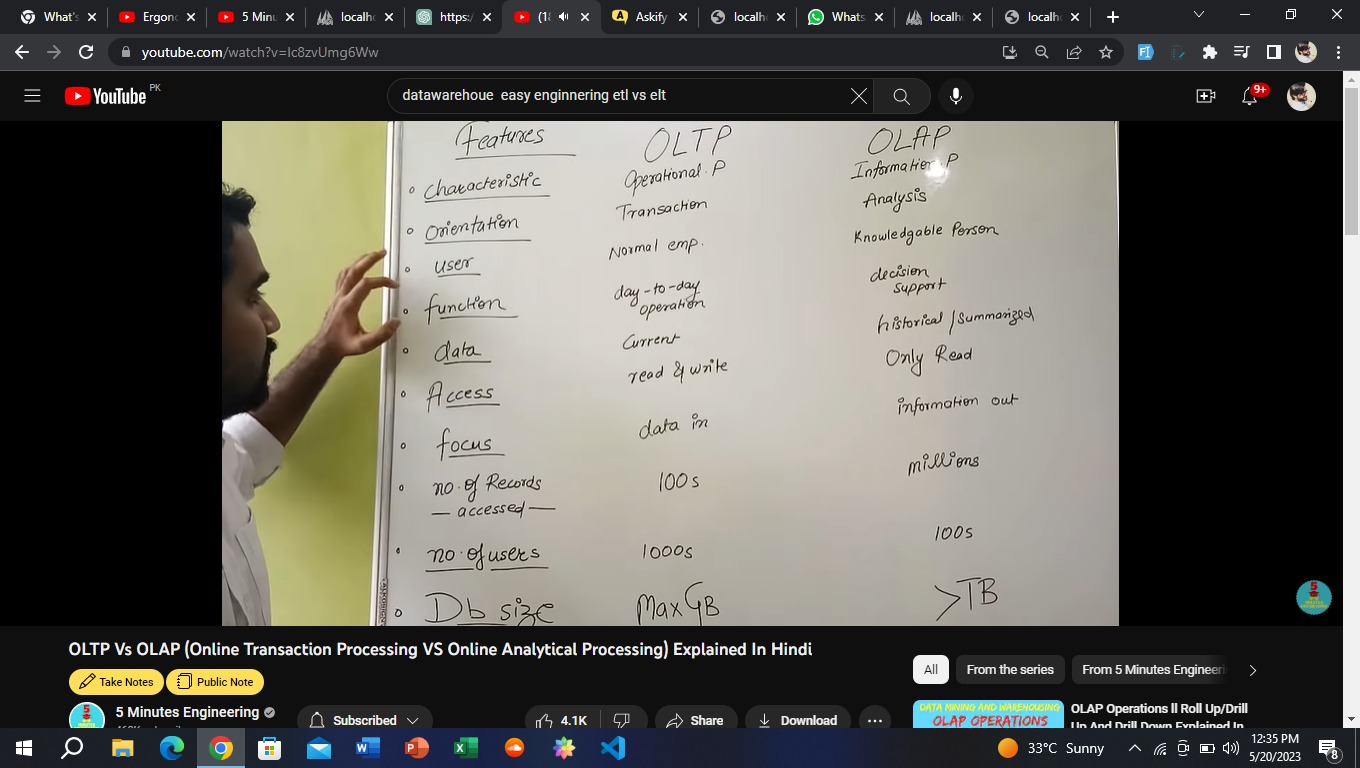 What's
Ergon
5 Minu
localh
https:/
(1
Askify
localh
Whats
localh
localh
youtube.com/watch?v=Ic8zvUmg6Ww
YouTube PK
datawarehoue easy enginnering etl vs elt
9+
Features OLTP OLAP
characteristic Operational. P Information P
orientation Transaction Analysis
user Normal emp. Knowledgable Person
function day-to-day operation decision support
data Current historical/summarized
Access read & write Only Read
focus data in information out
no. of Records
— accessed — 100s millions
no. of users 1000s 100s
Db size Max GB >TB
5
OLTP Vs OLAP (Online Transaction Processing VS Online Analytical Processing) Explained In Hindi
Take Notes Public Note
5 Minutes Engineering
Subscribed 4.1K Share Download
All From the series From 5 Minutes Engineeri
DATA MINING AND WAREHOUSING
OLAP OPERATIONS
OLAP Operations ll Roll Up/Drill
Up And Drill Down Explained In
33°C Sunny
12:35 PM
5/20/2023
8